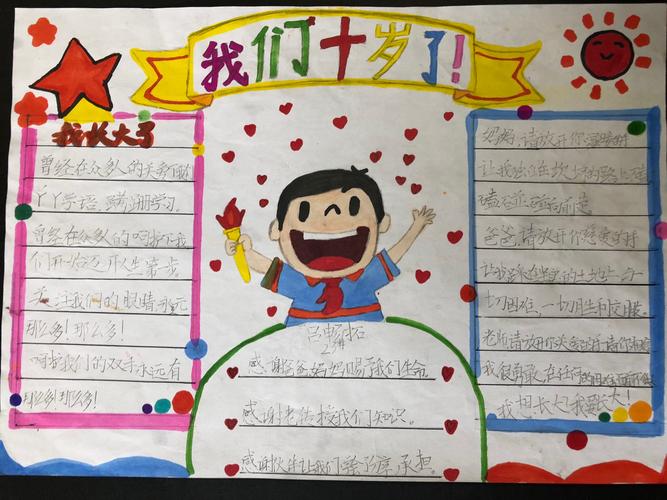 我们十岁了!
我长大了
曾经在众多的关爱下我们
丫丫学语、蹒跚学习。
曾经在众多的呵护下我
们开始迈开人生第一步
关注我们的眼睛永远
那么多!那么多!
呵护我们的双手永远有
那么多!那么多!
感谢爸爸妈妈赐予我们生命
感谢老师授我们知识。
感谢伙伴让我们学承担。
妈妈,请放开你温暖的
让我独在坎坷的路上
爸爸,请放开你慈爱的
让我在的土地上
切困难,一切胜利
老师请放开关爱的请你相
我很勇敢,在任何的困难面前
我想长大!我要长大!